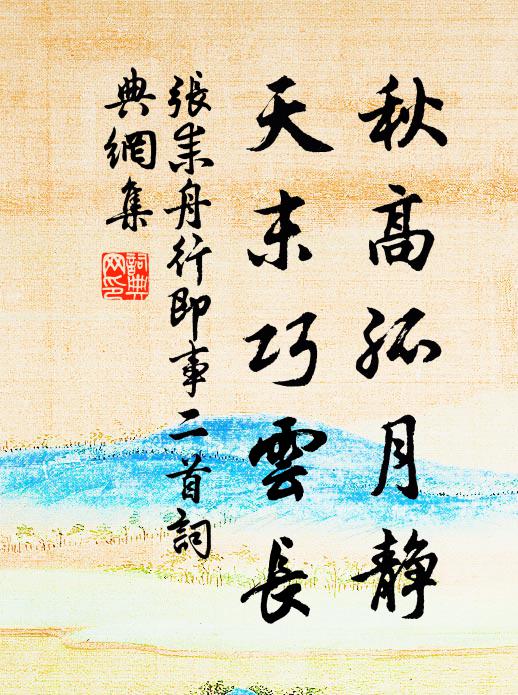 秋高孤月静
天末巧雲長
張耒舟行即事二首詞
典網集
詞典
网印